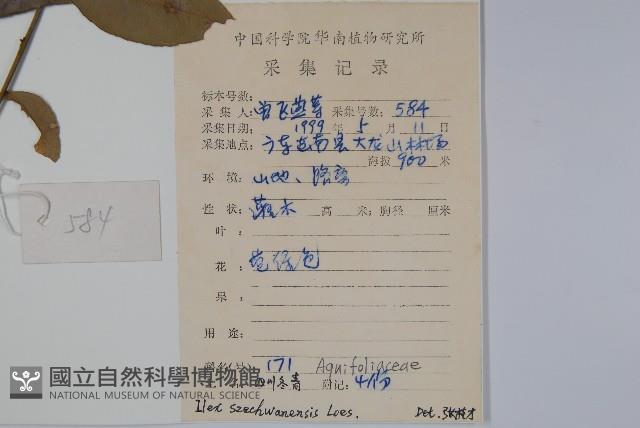 中国科学院华南植物研究所
采集记录
标本号数:
采集人:曾飞燕等 采集号数:584
采集日期: 1999年5月11日
采集地点:广东连南县大龙山林场
海拔 900 米
环境:山地、路旁
性状:灌木 高 米;胸径 厘米
叶:
花:黄绿色
果:
用途:
171 Aquifoliaceae
四川冬青 附记:4份
Ilex szechwanensis Loes. Det.
584
國立自然科學博物館
NATIONAL MUSEUM OF NATURAL SCIENCE